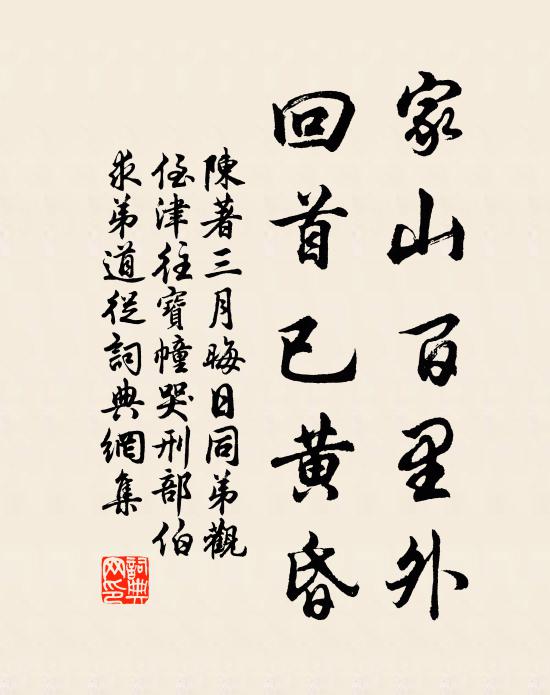 家山百里外
回首已黄昏
陳著三月晦日同弟觀
侄津往寶幢哭刑部伯
求弟道從詞典網集
詞典网印